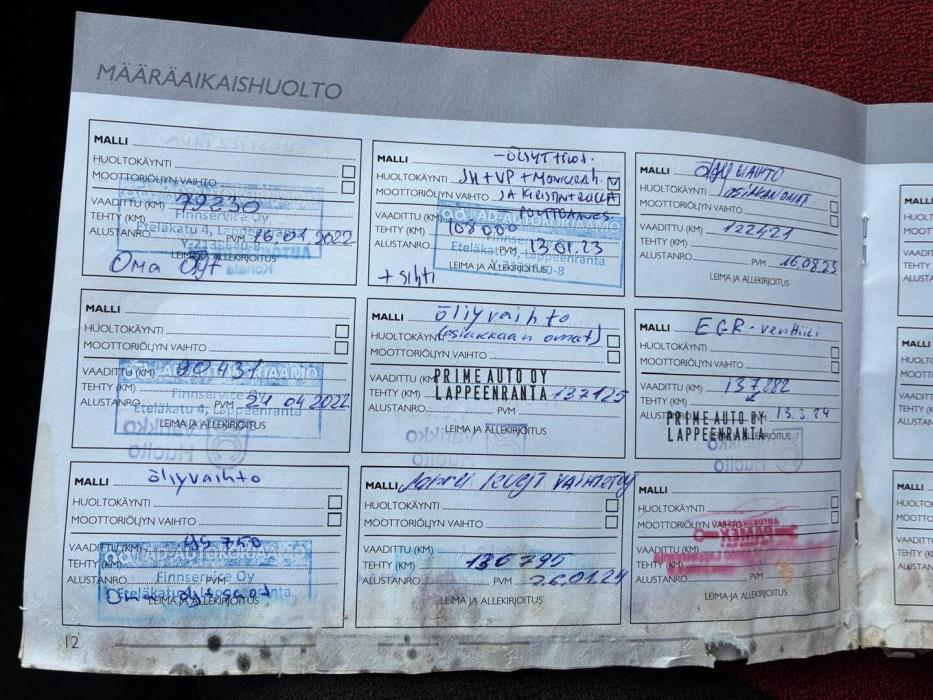 MÄÄRÄAIKAISHUOLTO
MALLI
HUOLTOKÄYNTI
MOOTTORIÖLJYN VAIHTO
VAADITTU (KM) 79230
TEHTY (KM)
Finnservice Oy
Eteläkatu 4, Lappeenranta
ALUSTANRO PVM 16.01.2022
LEIMA JA ALLEKIRJOITUS
Oma öljyt
MALLI
HUOLTOKÄYNTI JH+VP+
MOOTTORIÖLJYN VAIHTO JA
VAADITTU (KM)
TEHTY (KM) 108000
Eteläkatu 4, Lappeenranta
ALUSTANRO PVM 13.01.23
LEIMA JA ALLEKIRJOITUS
MALLI VAIHTO
HUOLTOKÄYNTI
MOOTTORIÖLJYN VAIHTO
VAADITTU (KM) 122421
TEHTY (KM)
ALUSTANRO PVM 16.08.23
LEIMA JA ALLEKIRJOITUS
MALLI
HUOLTOKÄYNTI
MOOTTORIÖLJYN VAIHTO
VAADITTU (KM) 90431
TEHTY (KM)
Finnservice Oy
Eteläkatu 4, Lappeenranta
ALUSTANRO PVM 21 04 2022
LEIMA JA ALLEKIRJOITUS
MALLI öliyvaihto
HUOLTOKÄYNTI (asiakkaan omat)
MOOTTORIÖLJYN VAIHTO
VAADITTU (KM) PRIME AUTO OY
TEHTY (KM) LAPPEENRANTA 137125
ALUSTANRO PVM
LEIMA JA ALLEKIRJOITUS
MALLI EGR-venttiili
HUOLTOKÄYNTI
MOOTTORIÖLJYN VAIHTO
VAADITTU (KM) 137282
TEHTY (KM)
ALUSTANRO PVM 13.3.24
PRIME AUTO OY
LAPPEENRANTA
LEIMA JA ALLEKIRJOITUS
MALLI öliyvaihto
HUOLTOKÄYNTI
MOOTTORIÖLJYN VAIHTO
VAADITTU (KM) 95750
TEHTY (KM)
Finnservice Oy
ALUSTANRO PVM
Eteläkatu 4, Lappeenranta
LEIMA JA ALLEKIRJOITUS
MALLI
HUOLTOKÄYNTI
MOOTTORIÖLJYN VAIHTO
VAADITTU (KM)
TEHTY (KM) 136795
ALUSTANRO PVM 26.01.24
LEIMA JA ALLEKIRJOITUS
MALLI
HUOLTOKÄYNTI
MOOTTORIÖLJYN VAIHTO
VAADITTU (KM)
TEHTY (KM)
ALUSTANRO PVM
LEIMA JA ALLEKIRJOITUS
12